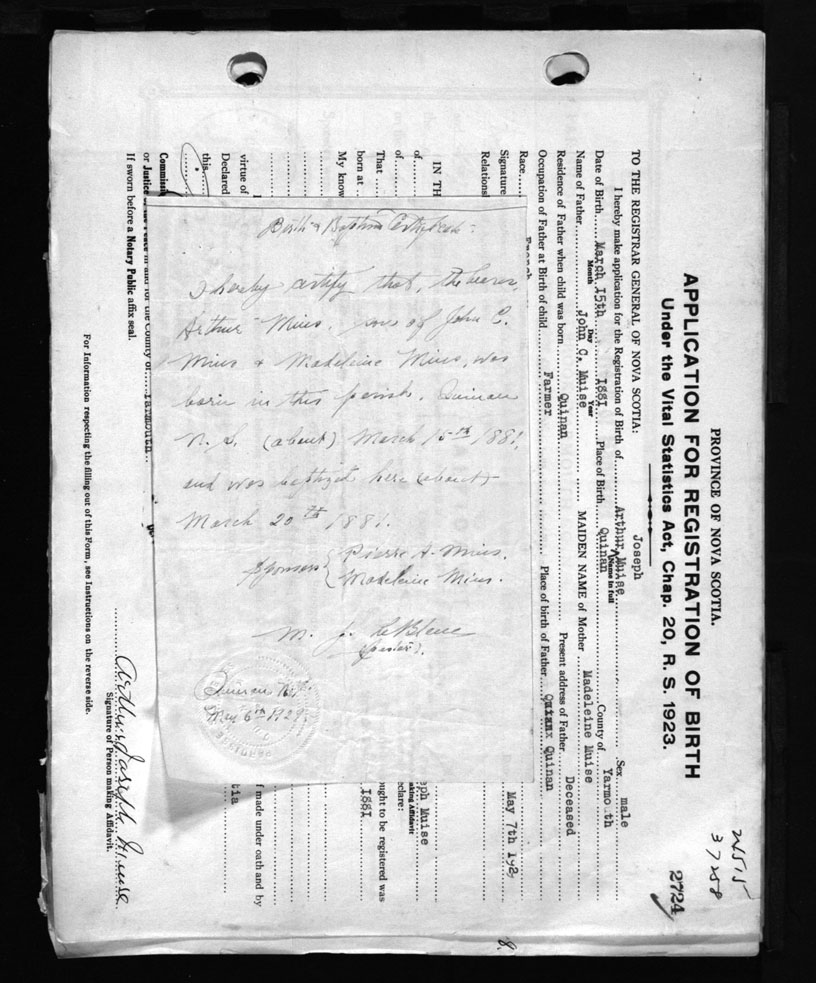 PROVINCE OF NOVA SCOTIA.
APPLICATION FOR REGISTRATION OF BIRTH
Under the Vital Statistics Act, Chap. 20, R. S. 1923.
37258
2724
TO THE REGISTRAR GENERAL OF NOVA SCOTIA:
Joseph
I hereby make application for the Registration of Birth of Arthur Muise Sex male
Name in full
Date of Birth March 15th 1881 Place of Birth Quinan County of Yarmo th
Month Day Year
Name of Father John C. Muise MAIDEN NAME of Mother Madeleine Muise
Residence of Father when child was born Quinan Present address of Father Deceased
Occupation of Father at Birth of child Farmer Place of birth of Father Quinan
Race French
Signature May 7th
Relations
IN TH
of
of eph Muise
aking Affidavit
eclare:
That ought to be registered was
born at 1881
My know
virtue of f made under oath and by
Declared tia
this
Commissi
or Justice of the Peace in and for the County of Yarmouth
If sworn before a Notary Public affix seal.
Arthur Joseph Muise
Signature of Person making Affidavit.
For Information respecting the filling out of this Form, see Instructions on the reverse side.
8.
Birth & Baptism Certificate
I hereby certify that, the bearer,
Arthur Mius, son of John C.
Mius & Madeleine Mius, was
born in this parish, Quinan
N. S. (about) March 15th 1881,
and was baptized here (about)
March 20th 1881.
Sponsors { Pierre A. Mius.
Madeleine Mius.
M. J. LeBlanc
(pastor).
Quinan N.S.
May 6th 1928